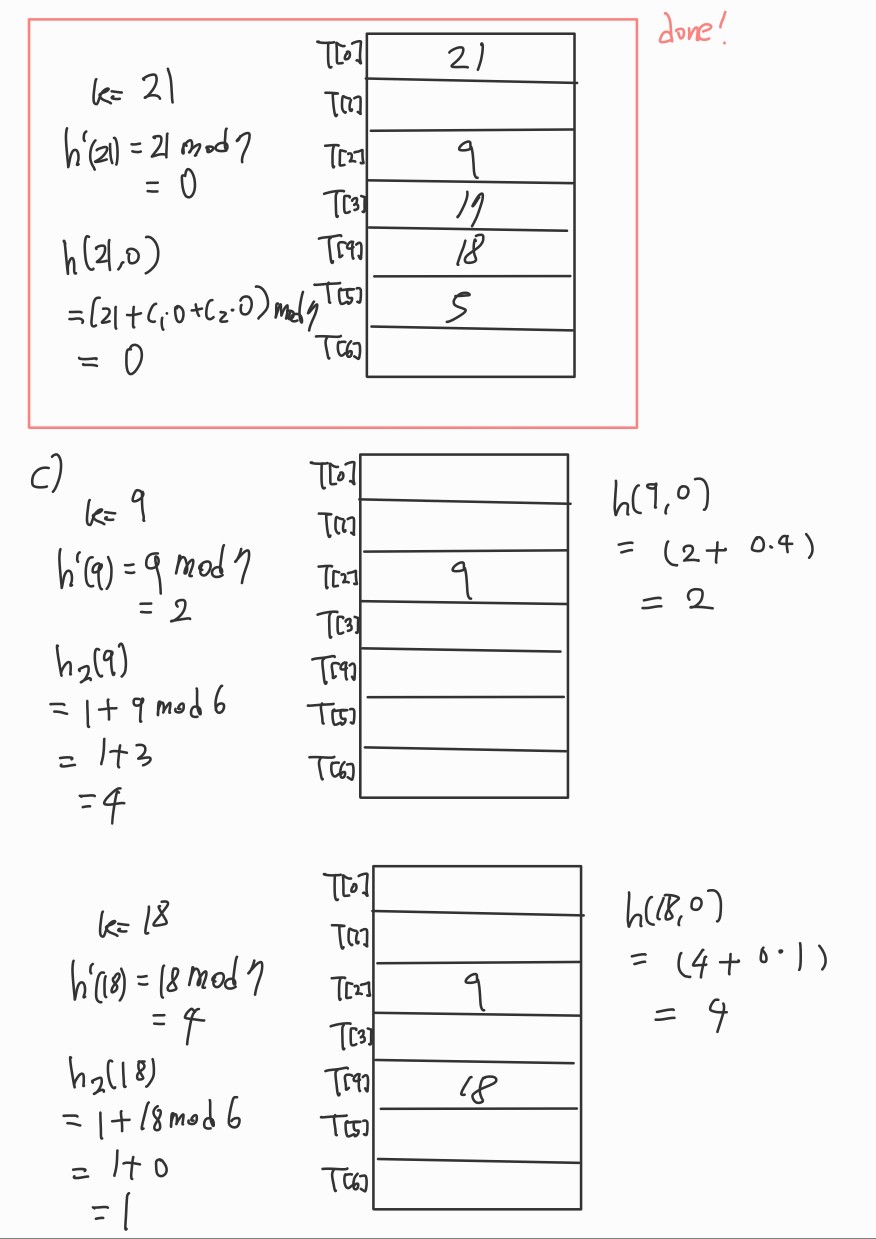 done!
k= 21
h'(21) = 21 mod 7
= 0
h(21,0)
=(21+C₁·0+C₂·0) mod 7
= 0
T[0] 21
T[1]
T[2] 9
T[3] 17
T[4] 18
T[5] 5
T[6]
c)
k= 9
h'(9) = 9 mod 7
= 2
h₂(9)
= 1+ 9 mod 6
= 1+3
=4
T[0]
T[1]
T[2] 9
T[3]
T[4]
T[5]
T[6]
h(9,0)
= (2+ 0·4)
= 2
k= 18
h'(18) = 18 mod 7
= 4
h₂(18)
= 1+18 mod 6
= 1+ 0
= 1
T[0]
T[1]
T[2] 9
T[3]
T[4] 18
T[5]
T[6]
h(18,0)
= (4+ 0·1)
= 4